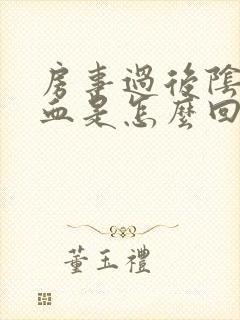 房事過後陰
血是怎麼回
董玉禮